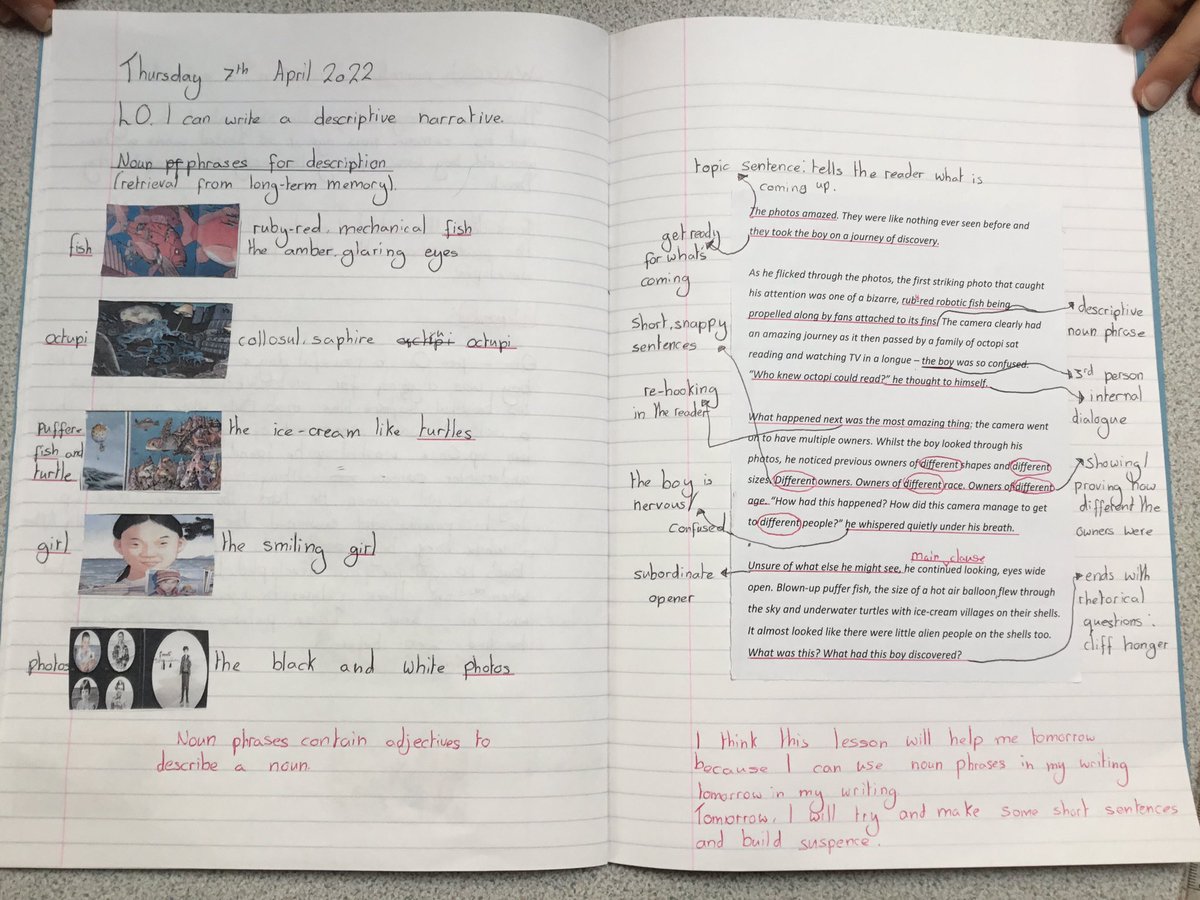 Thursday 7th April 2022
LO. I can write a descriptive narrative.
Noun pf phrases for description
(retrieval from long-term memory).
fish
ruby-red, mechanical fish
the amber, glaring eyes
octupi
collosul, saphire octupi
Puffer-
fish and
turtle
the ice-cream like turtles
girl
the smiling girl
photos
the black and white photos
Noun phrases contain adjectives to
describe a noun.
topic sentence: tells the reader what is
coming up.
The photos amazed. They were like nothing ever seen before and
they took the boy on a journey of discovery.
get ready
for what's
coming
As he flicked through the photos, the first striking photo that caught
his attention was one of a bizarre, ruby-red robotic fish being
propelled along by fans attached to its fins. The camera clearly had
an amazing journey as it then passed by a family of octopi sat
reading and watching TV in a longue – the boy was so confused.
"Who knew octopi could read?" he thought to himself.
short, snappy
sentences
descriptive
noun phrase
3rd person
internal
dialogue
re-hooking
in the reader
What happened next was the most amazing thing: the camera went
on to have multiple owners. Whilst the boy looked through his
photos, he noticed previous owners of different shapes and different
sizes. Different owners. Owners of different race. Owners of different
age. "How had this happened? How did this camera manage to get
to different people?" he whispered quietly under his breath.
the boy is
nervous/
confused
showing/
proving how
different the
owners were
main clause
Unsure of what else he might see, he continued looking, eyes wide
open. Blown-up puffer fish, the size of a hot air balloon, flew through
the sky and underwater turtles with ice-cream villages on their shells.
It almost looked like there were little alien people on the shells too.
What was this? What had this boy discovered?
subordinate
opener
ends with
rhetorical
questions:
cliff hanger
I think this lesson will help me tomorrow
because I can use noun phrases in my writing
tomorrow in my writing
Tomorrow, I will try and make some short sentences
and build suspence.